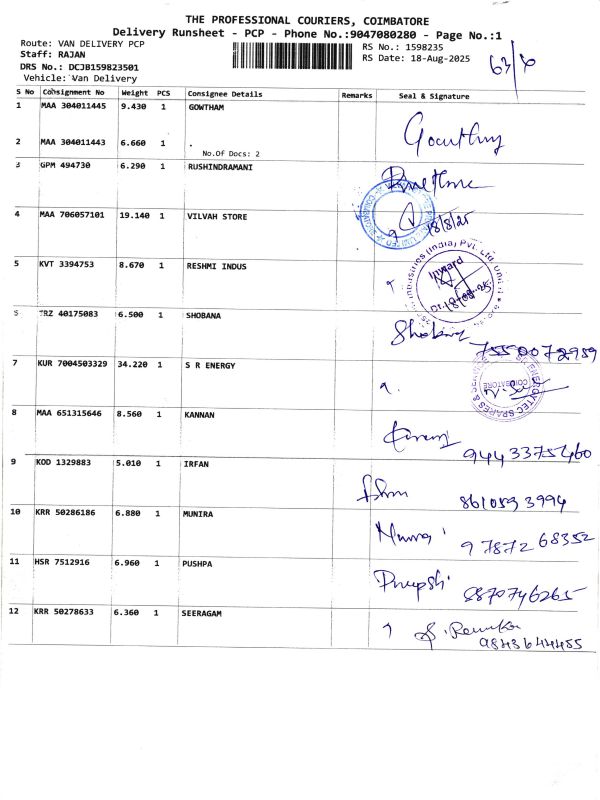 THE PROFESSIONAL COURIERS, COIMBATORE
Delivery Runsheet - PCP - Phone No.:9047080280 - Page No.:1
Route: VAN DELIVERY PCP
Staff: RAJAN
DRS No.: DCJB159823501
Vehicle: Van Delivery
RS No.: 1598235
RS Date: 18-Aug-2025
S No Consignment No Weight PCS Consignee Details Remarks Seal & Signature
1 MAA 304011445 9.430 1 GOWTHAM
2 MAA 304011443 6.660 1 .
No.Of Docs: 2
3 GPM 494730 6.290 1 RUSHINDRAMANI
4 MAA 706057101 19.140 1 VILVAH STORE
18/8/25
5 KVT 3394753 8.670 1 RESHMI INDUS
Industries (India) Pvt. Ltd.
Inward
Dt. 18/08/25
6 TRZ 40175083 6.500 1 SHOBANA
Shobana 7550072959
7 KUR 7004503329 34.220 1 S R ENERGY
COIMBATORE
8 MAA 651315646 8.560 1 KANNAN
9443375460
9 KOD 1329883 5.010 1 IRFAN
8610593994
10 KRR 50286186 6.880 1 MUNIRA
97872 68352
11 HSR 7512916 6.960 1 PUSHPA
8870746265
12 KRR 50278633 6.360 1 SEERAGAM
S. Renuka
9843644455